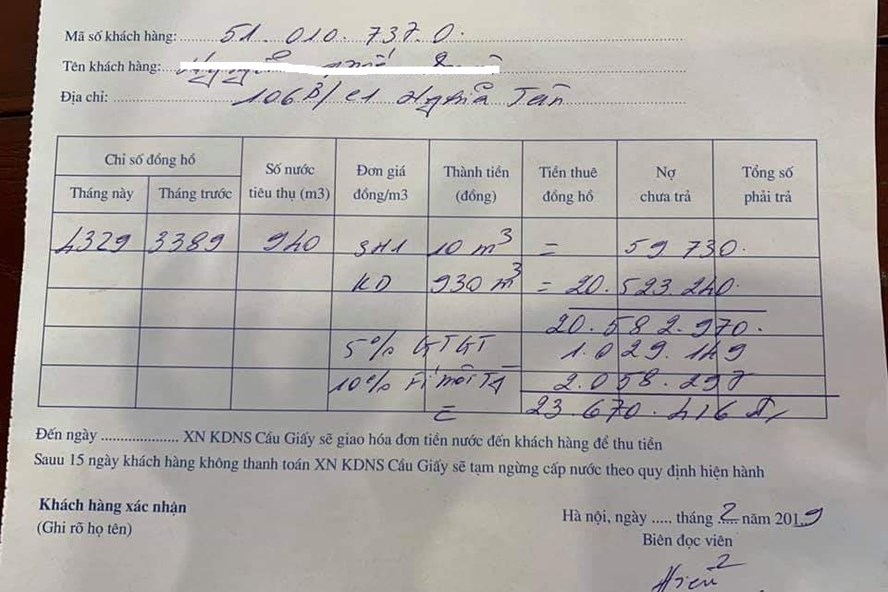 Mã số khách hàng: 51.010.737.0.
Tên khách hàng:
Địa chỉ: 106B/ C1 Nghĩa Tân
Chỉ số đồng hồ
Số nước tiêu thụ (m3)
Đơn giá đồng/m3
Thành tiền (đồng)
Tiền thuê đồng hồ
Nợ chưa trả
Tổng số phải trả
Tháng này Tháng trước
4329 3389 940 SH1 10 m³ = 59 730.
KD 930 m³ = 20.523.240.
20.582.970.
5% GTGT 1.029.149
10% Fí môi Tg 2.058.297
= 23.670.416 đ
Đến ngày .................... XN KDNS Cầu Giấy sẽ giao hóa đơn tiền nước đến khách hàng để thu tiền
Sauu 15 ngày khách hàng không thanh toán XN KDNS Cầu Giấy sẽ tạm ngừng cấp nước theo quy định hiện hành
Khách hàng xác nhận
(Ghi rõ họ tên)
Hà nội, ngày ..... tháng 2 năm 2019
Biên đọc viên